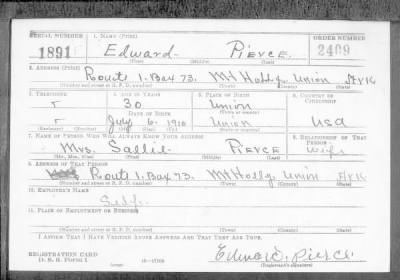 SERIAL NUMBER 1. NAME (Print) ORDER NUMBER
1891 Edward Pierce 2409
(First) (Middle) (Last)
2. ADDRESS (Print)
Route 1. Box 73. Mt Holly. Union Ark
(Number and street or R. F. D. number) (Town) (County) (State)
3. TELEPHONE 4. AGE IN YEARS 5. PLACE OF BIRTH 6. COUNTRY OF CITIZENSHIP
30 Union
DATE OF BIRTH (Town or county)
July 6. 1910 Union USA
(Exchange) (Number) (Mo.) (Day) (Yr.) (State or country)
7. NAME OF PERSON WHO WILL ALWAYS KNOW YOUR ADDRESS 8. RELATIONSHIP OF THAT PERSON
Mrs. Sallie Pierce Wife
(Mr., Mrs., Miss) (First) (Middle) (Last)
9. ADDRESS OF THAT PERSON
Route 1. Box 73. Mt Holly Union Ark
(Number and street or R. F. D. number) (Town) (County) (State)
10. EMPLOYER'S NAME
Self.
11. PLACE OF EMPLOYMENT OR BUSINESS
(Number and street or R. F. D. number) (Town) (County) (State)
I AFFIRM THAT I HAVE VERIFIED ABOVE ANSWERS AND THAT THEY ARE TRUE.
REGISTRATION CARD
D. S. S. Form 1 Edward. Pierce
(Registrant's signature)